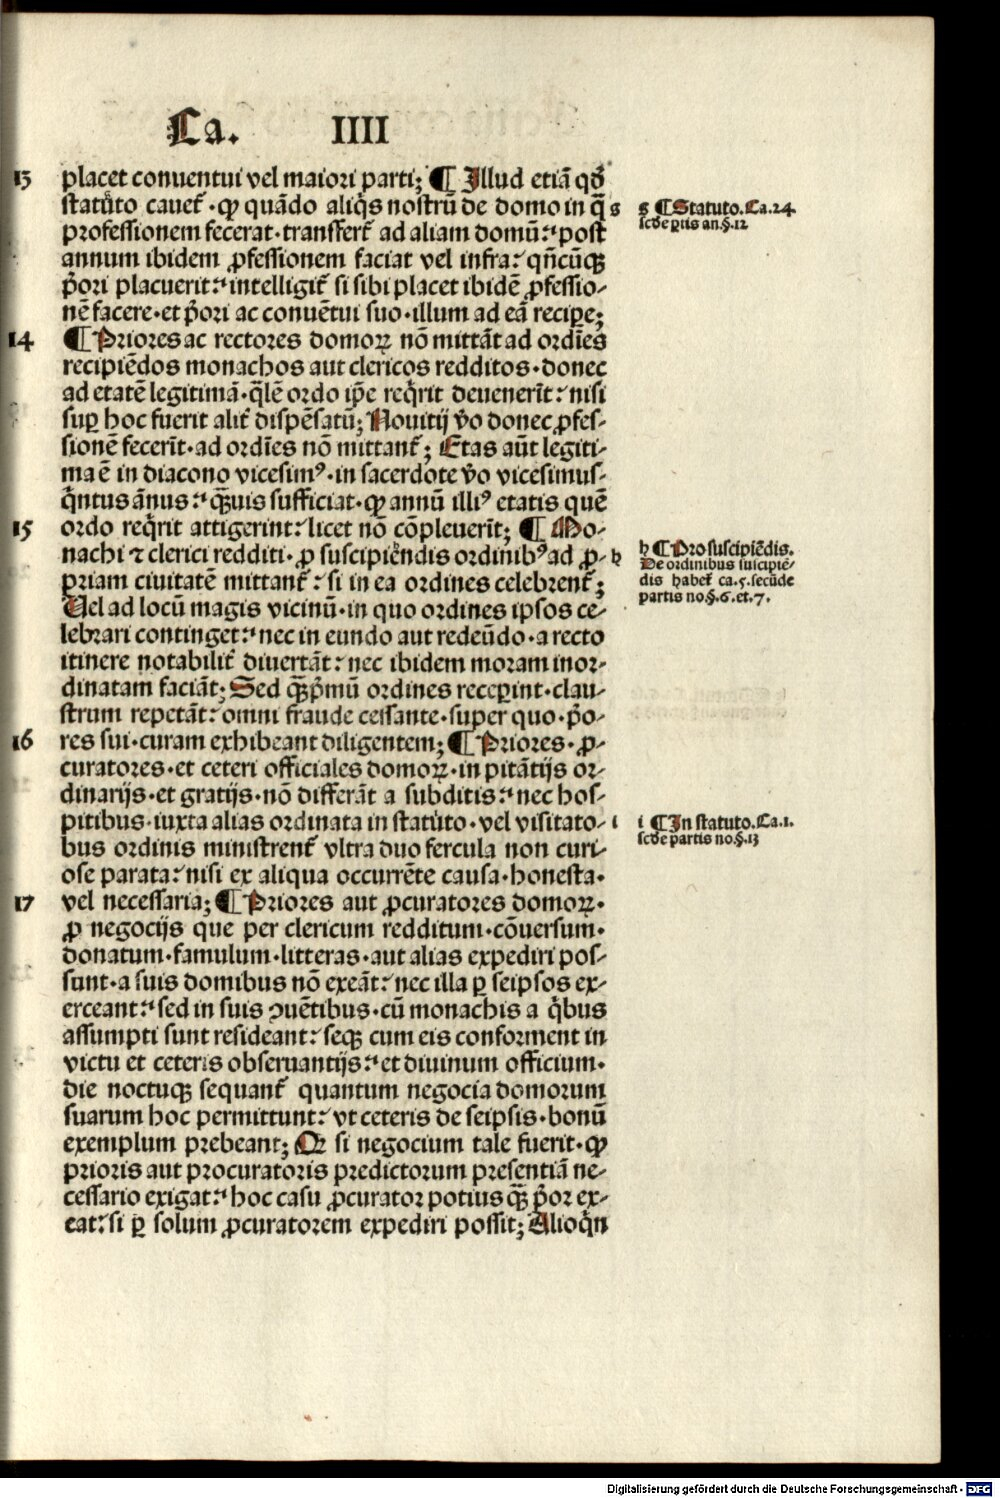 Ca. IIII
13 placet conuentui vel maiori parti; ¶ Illud etiā qđ
statuto cauet᷑ · ꝙ quādo aliq̇s nostrū de domo in q̄ s
professionem fecerat · transfert᷑ ad aliam domū : post
annum ibidem ꝓfessionem faciat vel infra : qn̄cūqꝫ
p̄ori placuerit : intelligit᷑ si sibi placet ibidē ꝓfessio-
nē facere · et p̄ori ac conuētui suo · illum ad eā recipe;
14 ¶ Priores ac rectores domoꝝ nō mittāt ad ordīes
recipiēdos monachos aut clericos redditos · donec
ad etatē legitimā · q̄lē ordo ip̄e req̇rit deuenerīt : nisi
suꝑ hoc fuerit alit᷑ dispēsatū; Nouitij v̄o donec ꝓfes-
sionē fecerīt · ad ordīes nō mittant᷑; Etas aūt legiti-
ma ē in diacono vicesimꝰ · in sacerdote v̄o vicesimus-
q̇ntus annus : q̄ꝫuis sufficiat · ꝙ annū illiꝰ etatis quē
15 ordo req̇rit attigerint : licet nō cōpleuerīt; ¶ Mo-
nachi ⁊ clerici redditi · ꝓ suscipiēndis ordinibꝰ ad ꝓ- h
priam ciuitatē mittant᷑ : si in ea ordines celebrent᷑;
Uel ad locū magis vicinū · in quo ordines ipsos ce-
lebrari continget : nec in eundo aut redeūdo · a recto
itinere notabilit᷑ diuertāt : nec ibidem moram inor-
dinatam faciāt; Sed q̄ꝫp̄mū ordines receꝑint · clau-
strum repetāt : omni fraude cessante · super quo · p̄o-
16 res sui · curam exhibeant diligentem; ¶ Priores · ꝓ-
curatores · et ceteri officiales domoꝝ · in pitātijs or-
dinarijs · et gratijs · nō differāt a subditis : nec hos-
pitibus · iuxta alias ordinata in statuto · vel visitato- i
bus ordinis ministrent᷑ vltra duo fercula non curi-
ose parata : nisi ex aliqua occurrēte causa · honesta ·
17 vel necessaria; ¶ Priores aut ꝓcuratores domoꝝ ·
ꝓ negocijs que per clericum redditum · cōuersum ·
donatum · famulum · litteras · aut alias expediri pos-
sunt · a suis domibus nō exeāt : nec illa ꝑ seipsos ex-
erceant : sed in suis ꝯuētibus · cū monachis a q̇bus
assumpti sunt resideant : seqꝫ cum eis conforment in
victu et ceteris obseruantijs : et diuinum officium ·
die noctuqꝫ sequant᷑ quantum negocia domorum
suarum hoc permittunt : vt ceteris de seipsis · bonū
exemplum prebeant; Qꝛ si negocium tale fuerit · ꝙ
prioris aut procuratoris predictorum presentiā ne-
cessario exigat : hoc casu ꝓcurator potius q̄ꝫ p̄or ex-
eat : si ꝑ solum ꝓcuratorem expediri possit; Alioq̇n
s ¶ Statuto. Ca. 24.
scđe ꝑtis an. §. 12
h ¶ Pro suscipiēdis.
De ordinibus suscipiē-
dis habet᷑ ca. 5. secūde
partis no. §. 6. et. 7.
i ¶ In statuto. Ca. 1.
scđe partis no. §. 13
Digitalisierung gefördert durch die Deutsche Forschungsgemeinschaft - DFG